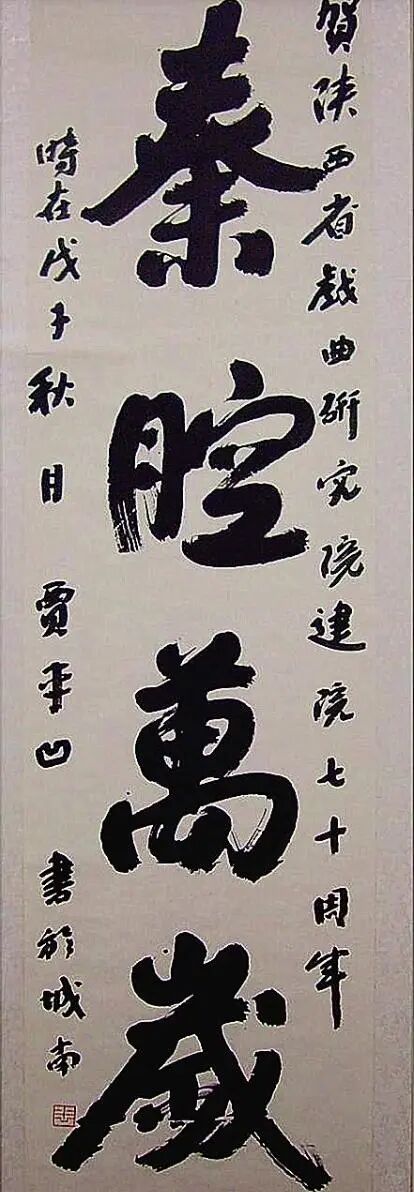 賀陕西省戯曲研究院建院七十周年
秦腔萬歲
時在戊子秋月 賈平凹 書於城南